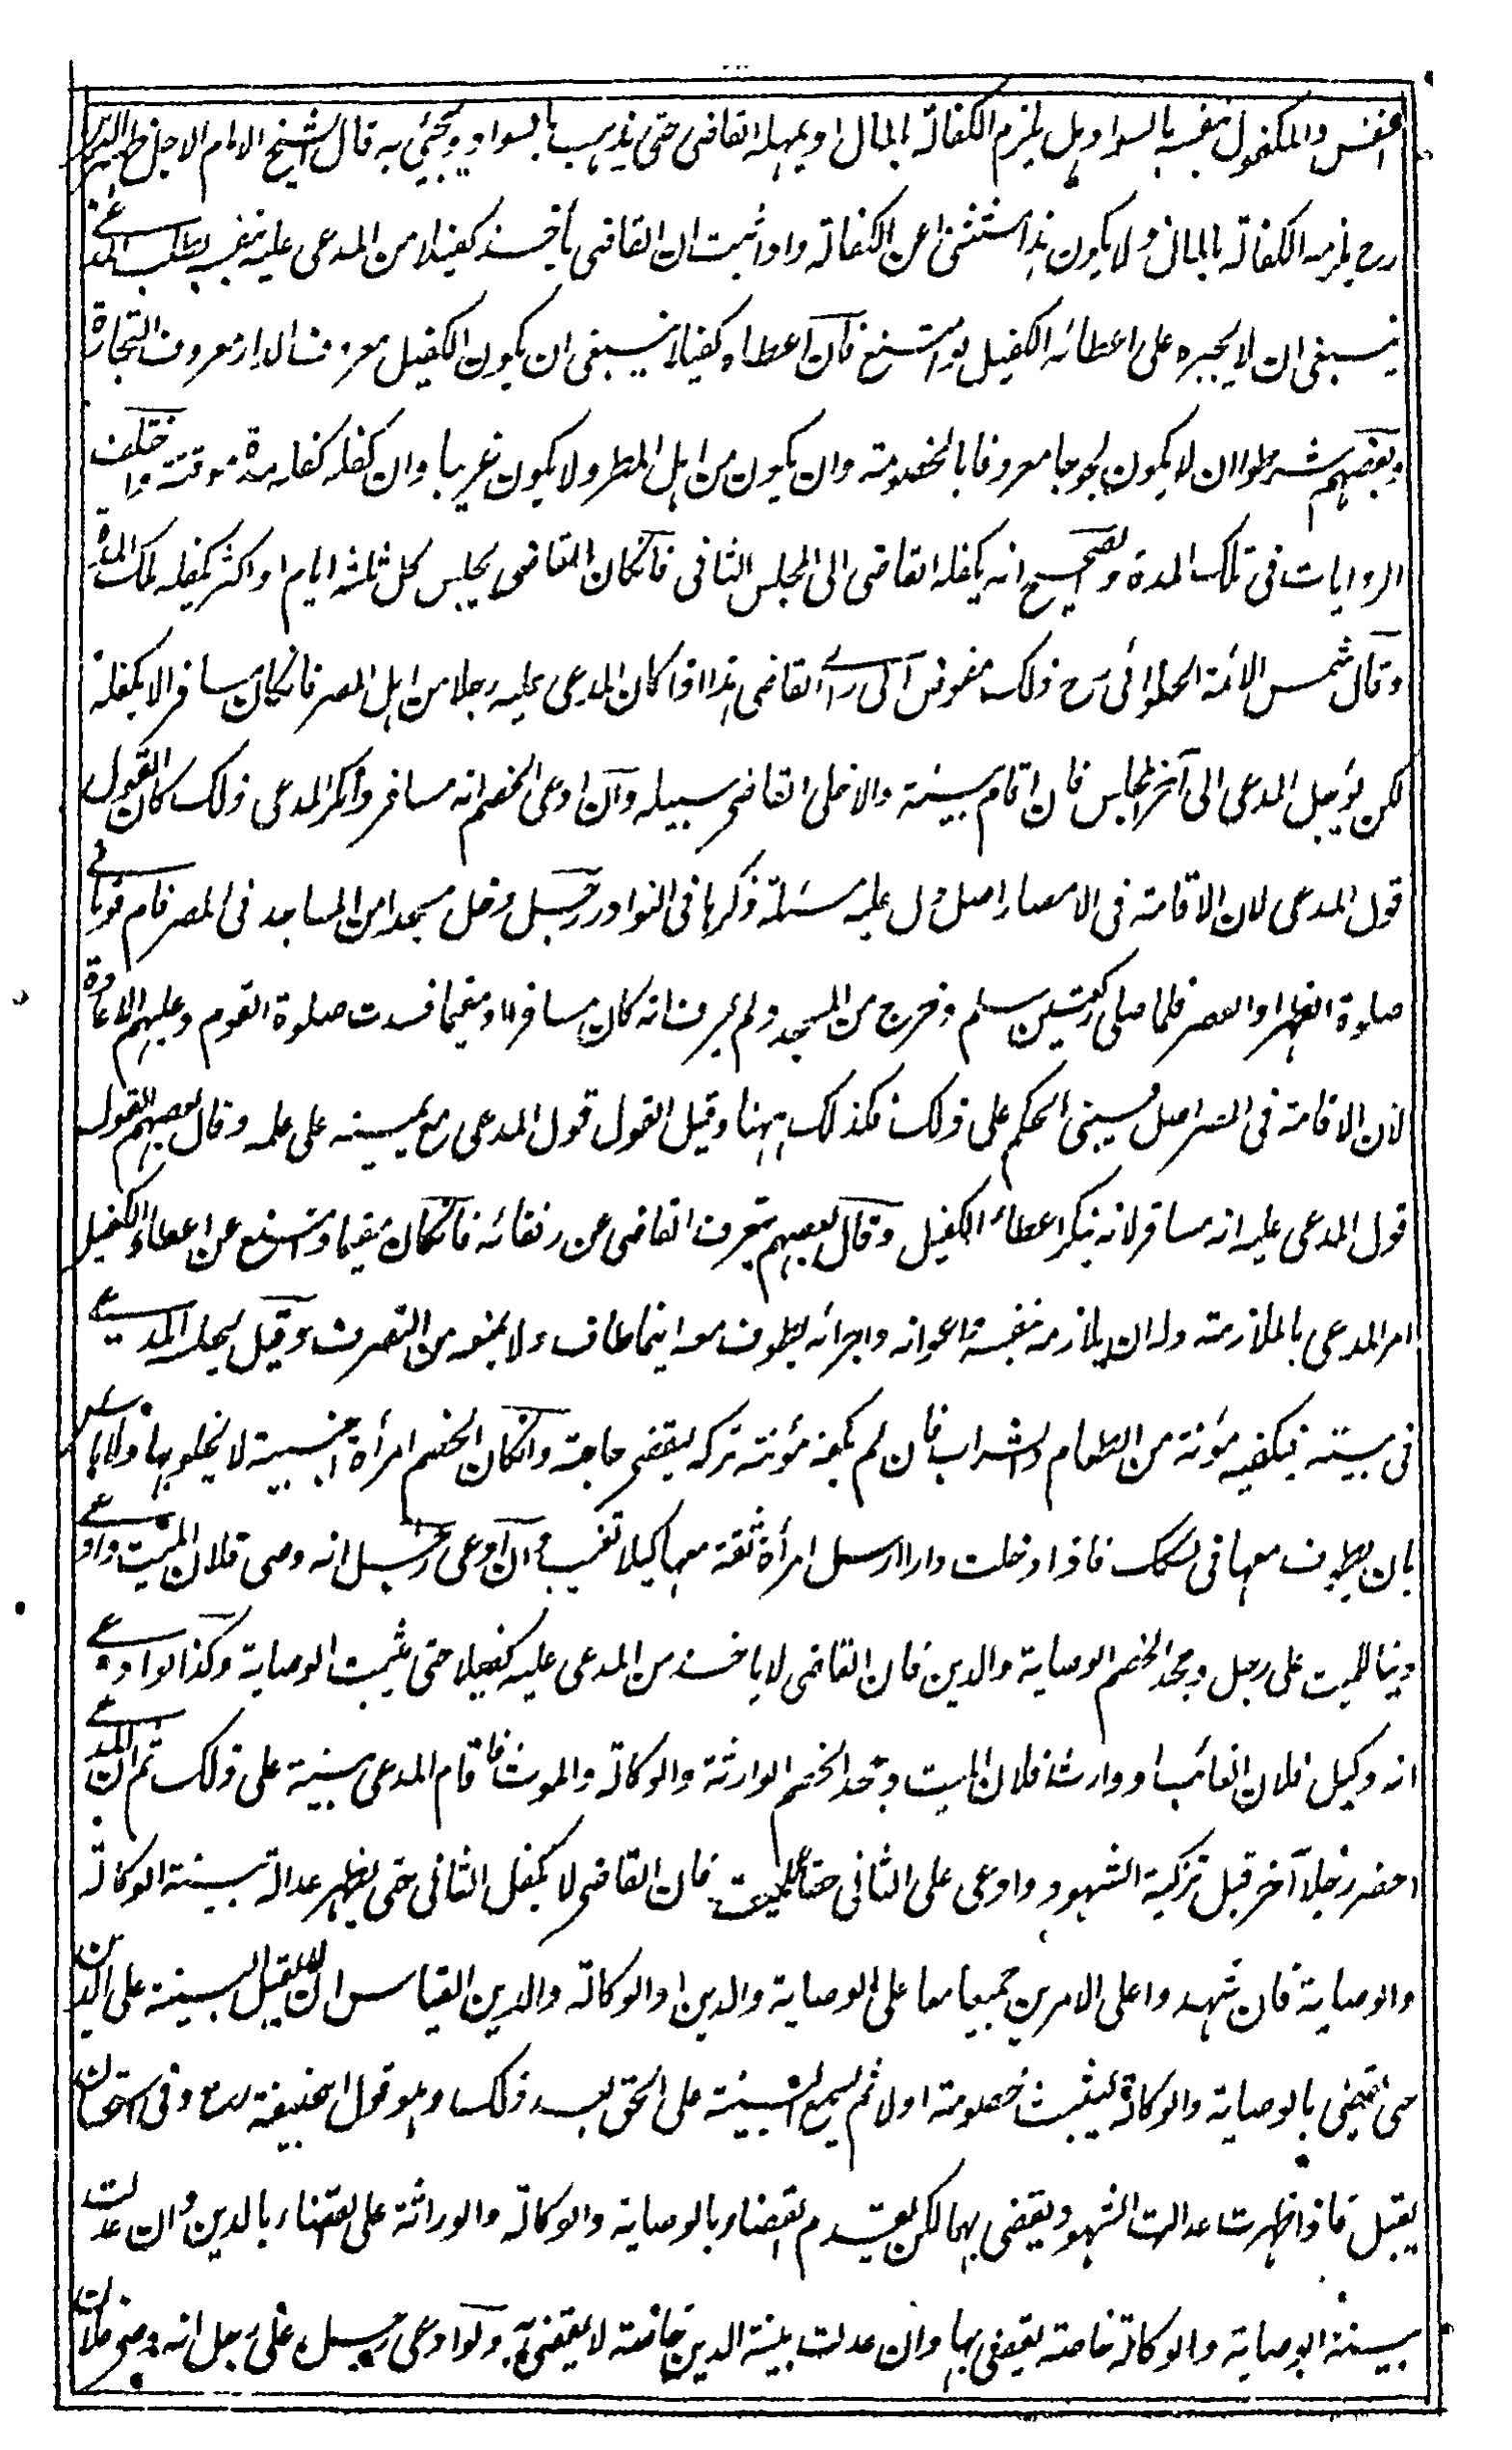 النفس والمكفول بنفسه بالسواد هل يلزم الكفالة بالمال او يمهله القاضى حتى يذهب بالسواد ويجئ به قال الشيخ الامام الاجل ظهير الدين
رح يلزمه الكفالة بالمال ولا يكون هذا مستثنى عن الكفالة واذا ثبت ان القاضى يأخذ كفيلا من المدعى عليه بنفسه بطلب المدعى
ينبغى ان لا يجبره على اعطائه الكفيل لو امتنع فان اعطاه كفيلا ينبغى ان يكون الكفيل معروف الدار معروف التجارة
وبعضهم شرطوا ان لا يكون لجوجا معروفا بالخصومة وان يكون من اهل المصر ولا يكون غريبا وان كفله كفله مدة موقتة واختلف
الروايات فى تلك المدة والصحيح انه يكفله القاضى الى المجلس الثانى فانكان القاضى يجلس كل ثلثة ايام او اكثر يكفله تلك المدة
وقال شمس الائمة الحلوائى رح ذلك مفوض الى راى القاضى هذا اذا كان المدعى عليه رجلا من اهل المصر فانكان مسافرا لا يكفله
لكن يؤجل المدعى الى آخر المجلس فان اقام بينة والا خلى القاضى سبيله وان ادعى الخصم انه مسافر وانكر المدعى ذلك كان القول
قول المدعى لان الاقامة فى الامصار اصل دل عليه مسئلة ذكرها فى النوادر رجل دخل مسجدا من المساجد فى المصر فام قوما فى
صلوة الظهر او العصر فلما صلى ركعتين سلم وخرج من المسجد ولم يعرف انه كان مسافرا او مقيما فسدت صلوة القوم وعليهم الاعادة
لان الاقامة فى المصر اصل فيبنى الحكم على ذلك فكذلك ههنا وقيل القول قول المدعى مع يمينه على علمه وقال بعضهم القول
قول المدعى عليه انه مسافر لانه ينكر اعطاء الكفيل وقال بعضهم يتعرف القاضى عن رفقائه فانكان مقيما وامتنع عن اعطاء الكفيل
امر المدعى بالملازمة وله ان يلازمه بنفسه واعوانه واجرائه يطوف معه اينما طاف ولا يمنعه من التصرف وقيل يحبسه المدعى
فى بيته فيكفيه مؤنة من الطعام والشراب فان لم يكفه مؤنته تركه ليقضى حاجته وانكان الخصم امرأة اجنبية لا يخلو بها ولا باس
بان يطوف معها فى السكك فاذا دخلت دارا ارسل امرأة ثقة معها كيلا تغيب وان ادعى رجل انه وصى فلان الميت وادعى
دينا للميت على رجل وجحد الخصم الوصاية والدين فان القاضى لا ياخذ من المدعى عليه كفيلا حتى يثبت الوصاية وكذا لو ادعى
انه وكيل فلان الغائب او وارث فلان الميت وجحد الخصم الوراثة والوكالة والموت فاقام المدعى بينة على ذلك ثم ان المدعى
احضر رجلا آخر قبل تزكية الشهود وادعى على الثانى حقا للميت فان القاضى لا يكفل الثانى حتى يظهر عدالة بينة الوكالة
والوصاية فان شهدوا على الامرين جميعا معا على الوصاية والدين او الوكالة والدين القياس ان لا يقبل البينة على الدين
حتى يقضى بالوصاية والوكالة ليثبت خصومته اولا ثم يسمع البينة على الحق بعد ذلك وهو قول ابيحنيفة رح وفى الاستحسان
يقبل فاذا ظهرت عدالة الشهود يقضى بهما لكن يقدم القضاء بالوصاية والوكالة والوراثة على القضاء بالدين وان عدلت
بينة الوصاية والوكالة خاصة يقضى بها وان عدلت بينة الدين خاصة لا يقضى به ولو ادعى رجل على رجل انه وصى فلان